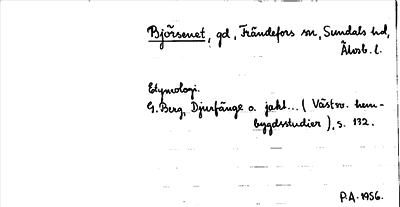 Björsenet, gd, Frändefors sn, Sundals hd,
Älvsb. l.
Etymologi.
G. Berg, Djurfänge o. jakt... (Västsv. hem-
bygdsstudier), s. 132.
P.A. 1956.